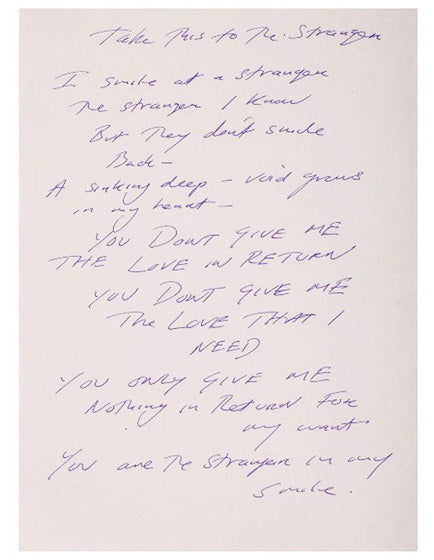 Take This to The Stranger
I smile at a stranger
The stranger I know
But They don't smile
Back –
A sinking deep – void grows
in my heart –
YOU DONT GIVE ME
THE LOVE IN RETURN
YOU DONT GIVE ME
The LOVE THAT I
NEED
YOU ONLY GIVE ME
Nothing in Return For
my want
You are The Stranger in my
smile.